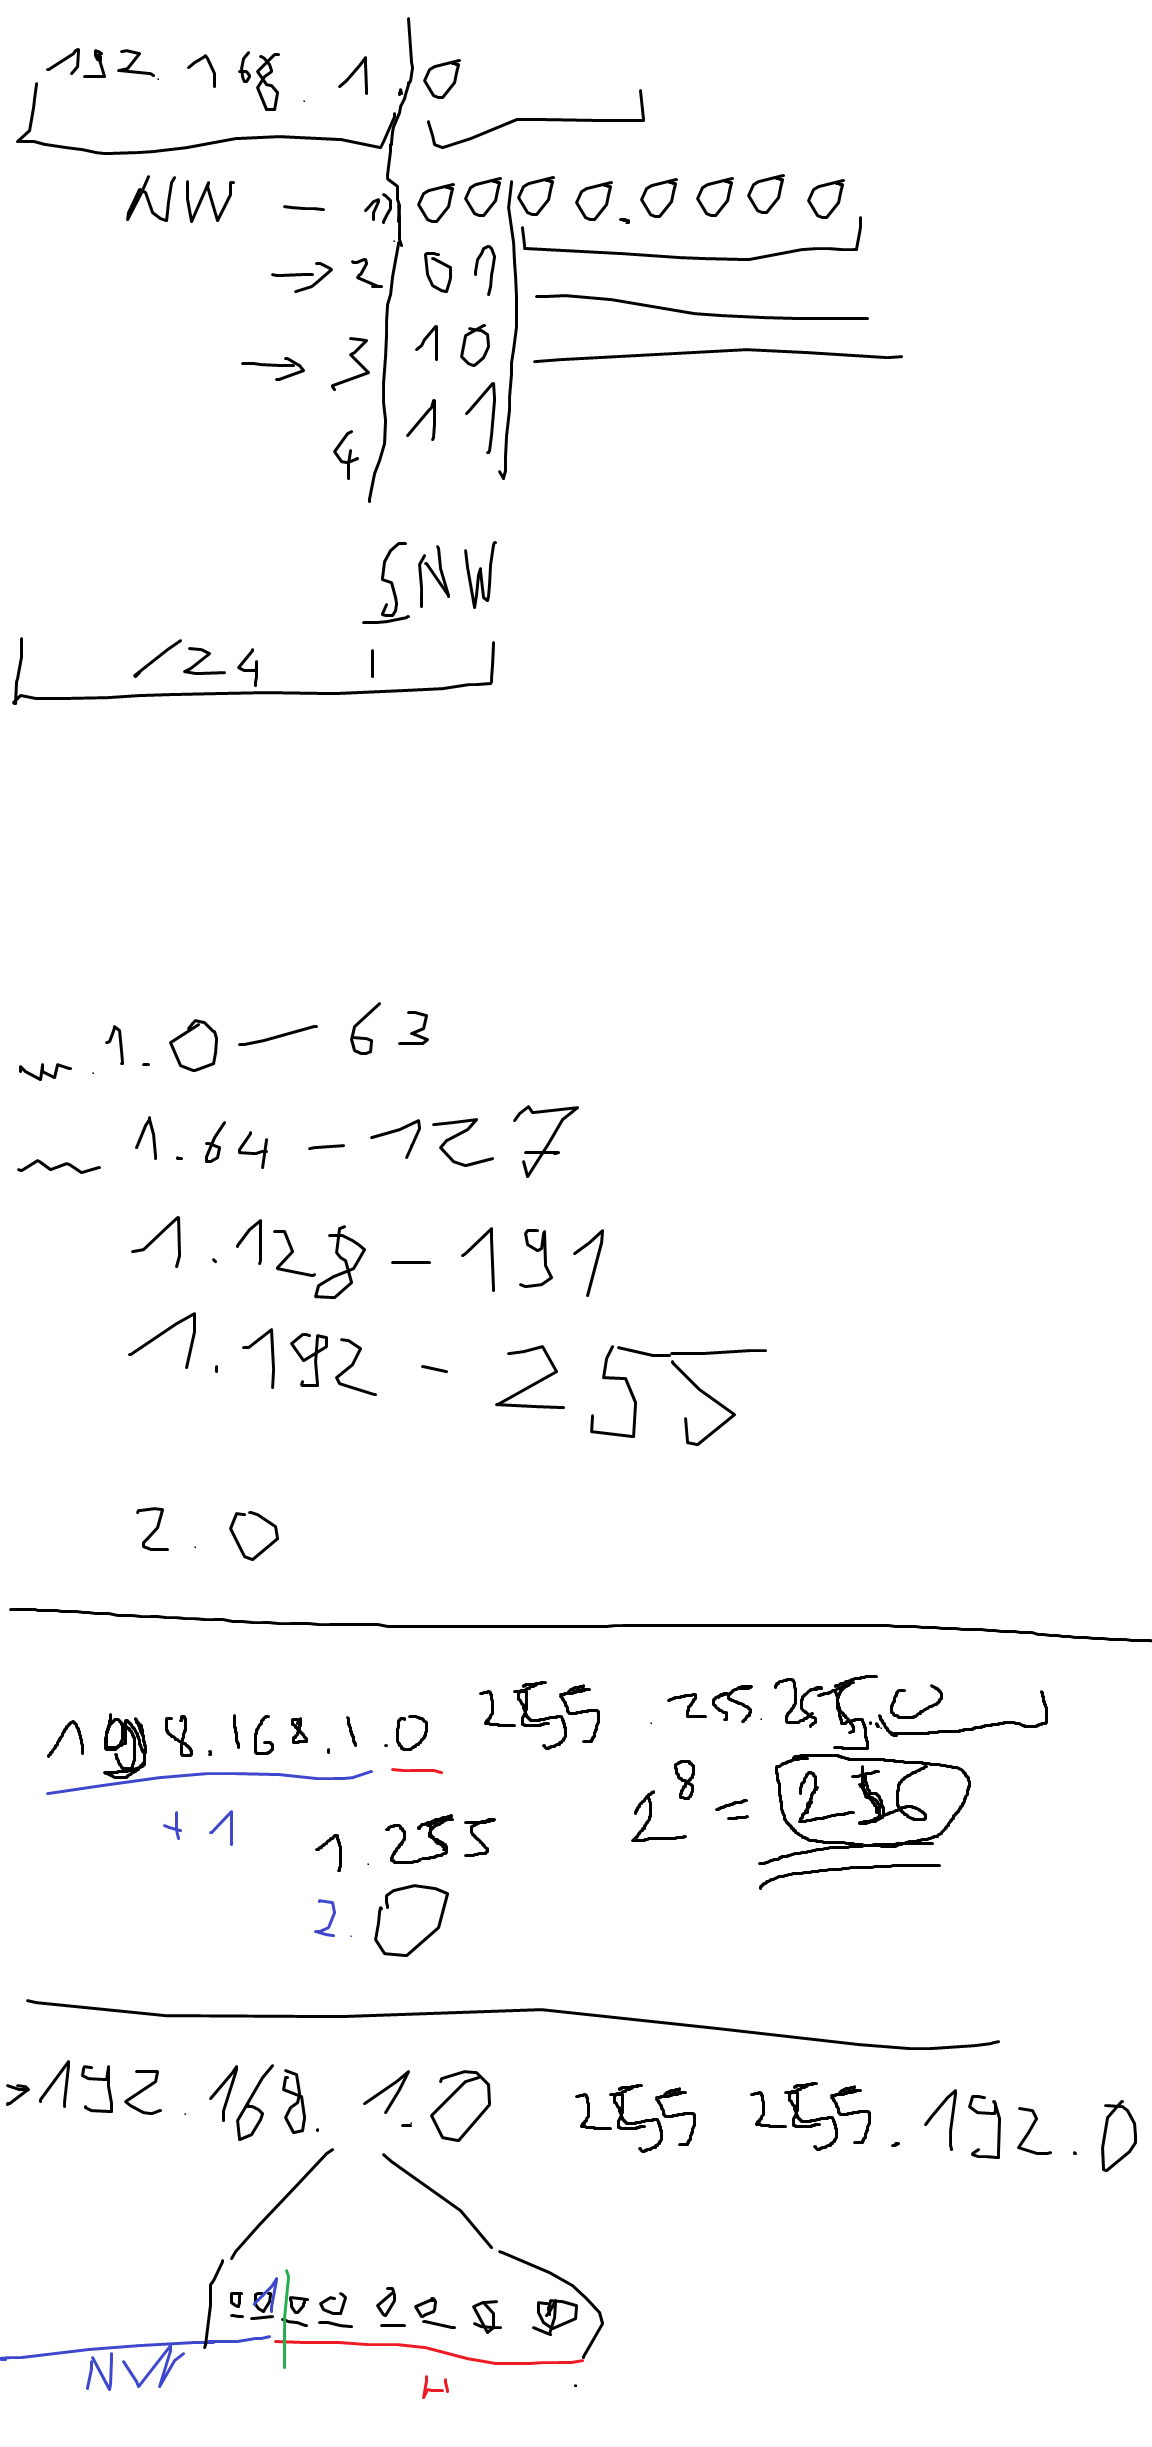 192.168.1.0
NW - 1) 00 00.0000
→ 2 01
→ 3 10
4 11
SNW
/24
1.0 - 63
1.64 - 127
1.128 - 191
1.192 - 255
2.0
198.168.1.0 255.255.255.0
+1
2^8 = 256
1.255
2.0
→ 192.168.1.0 255 255.192.0
NW H